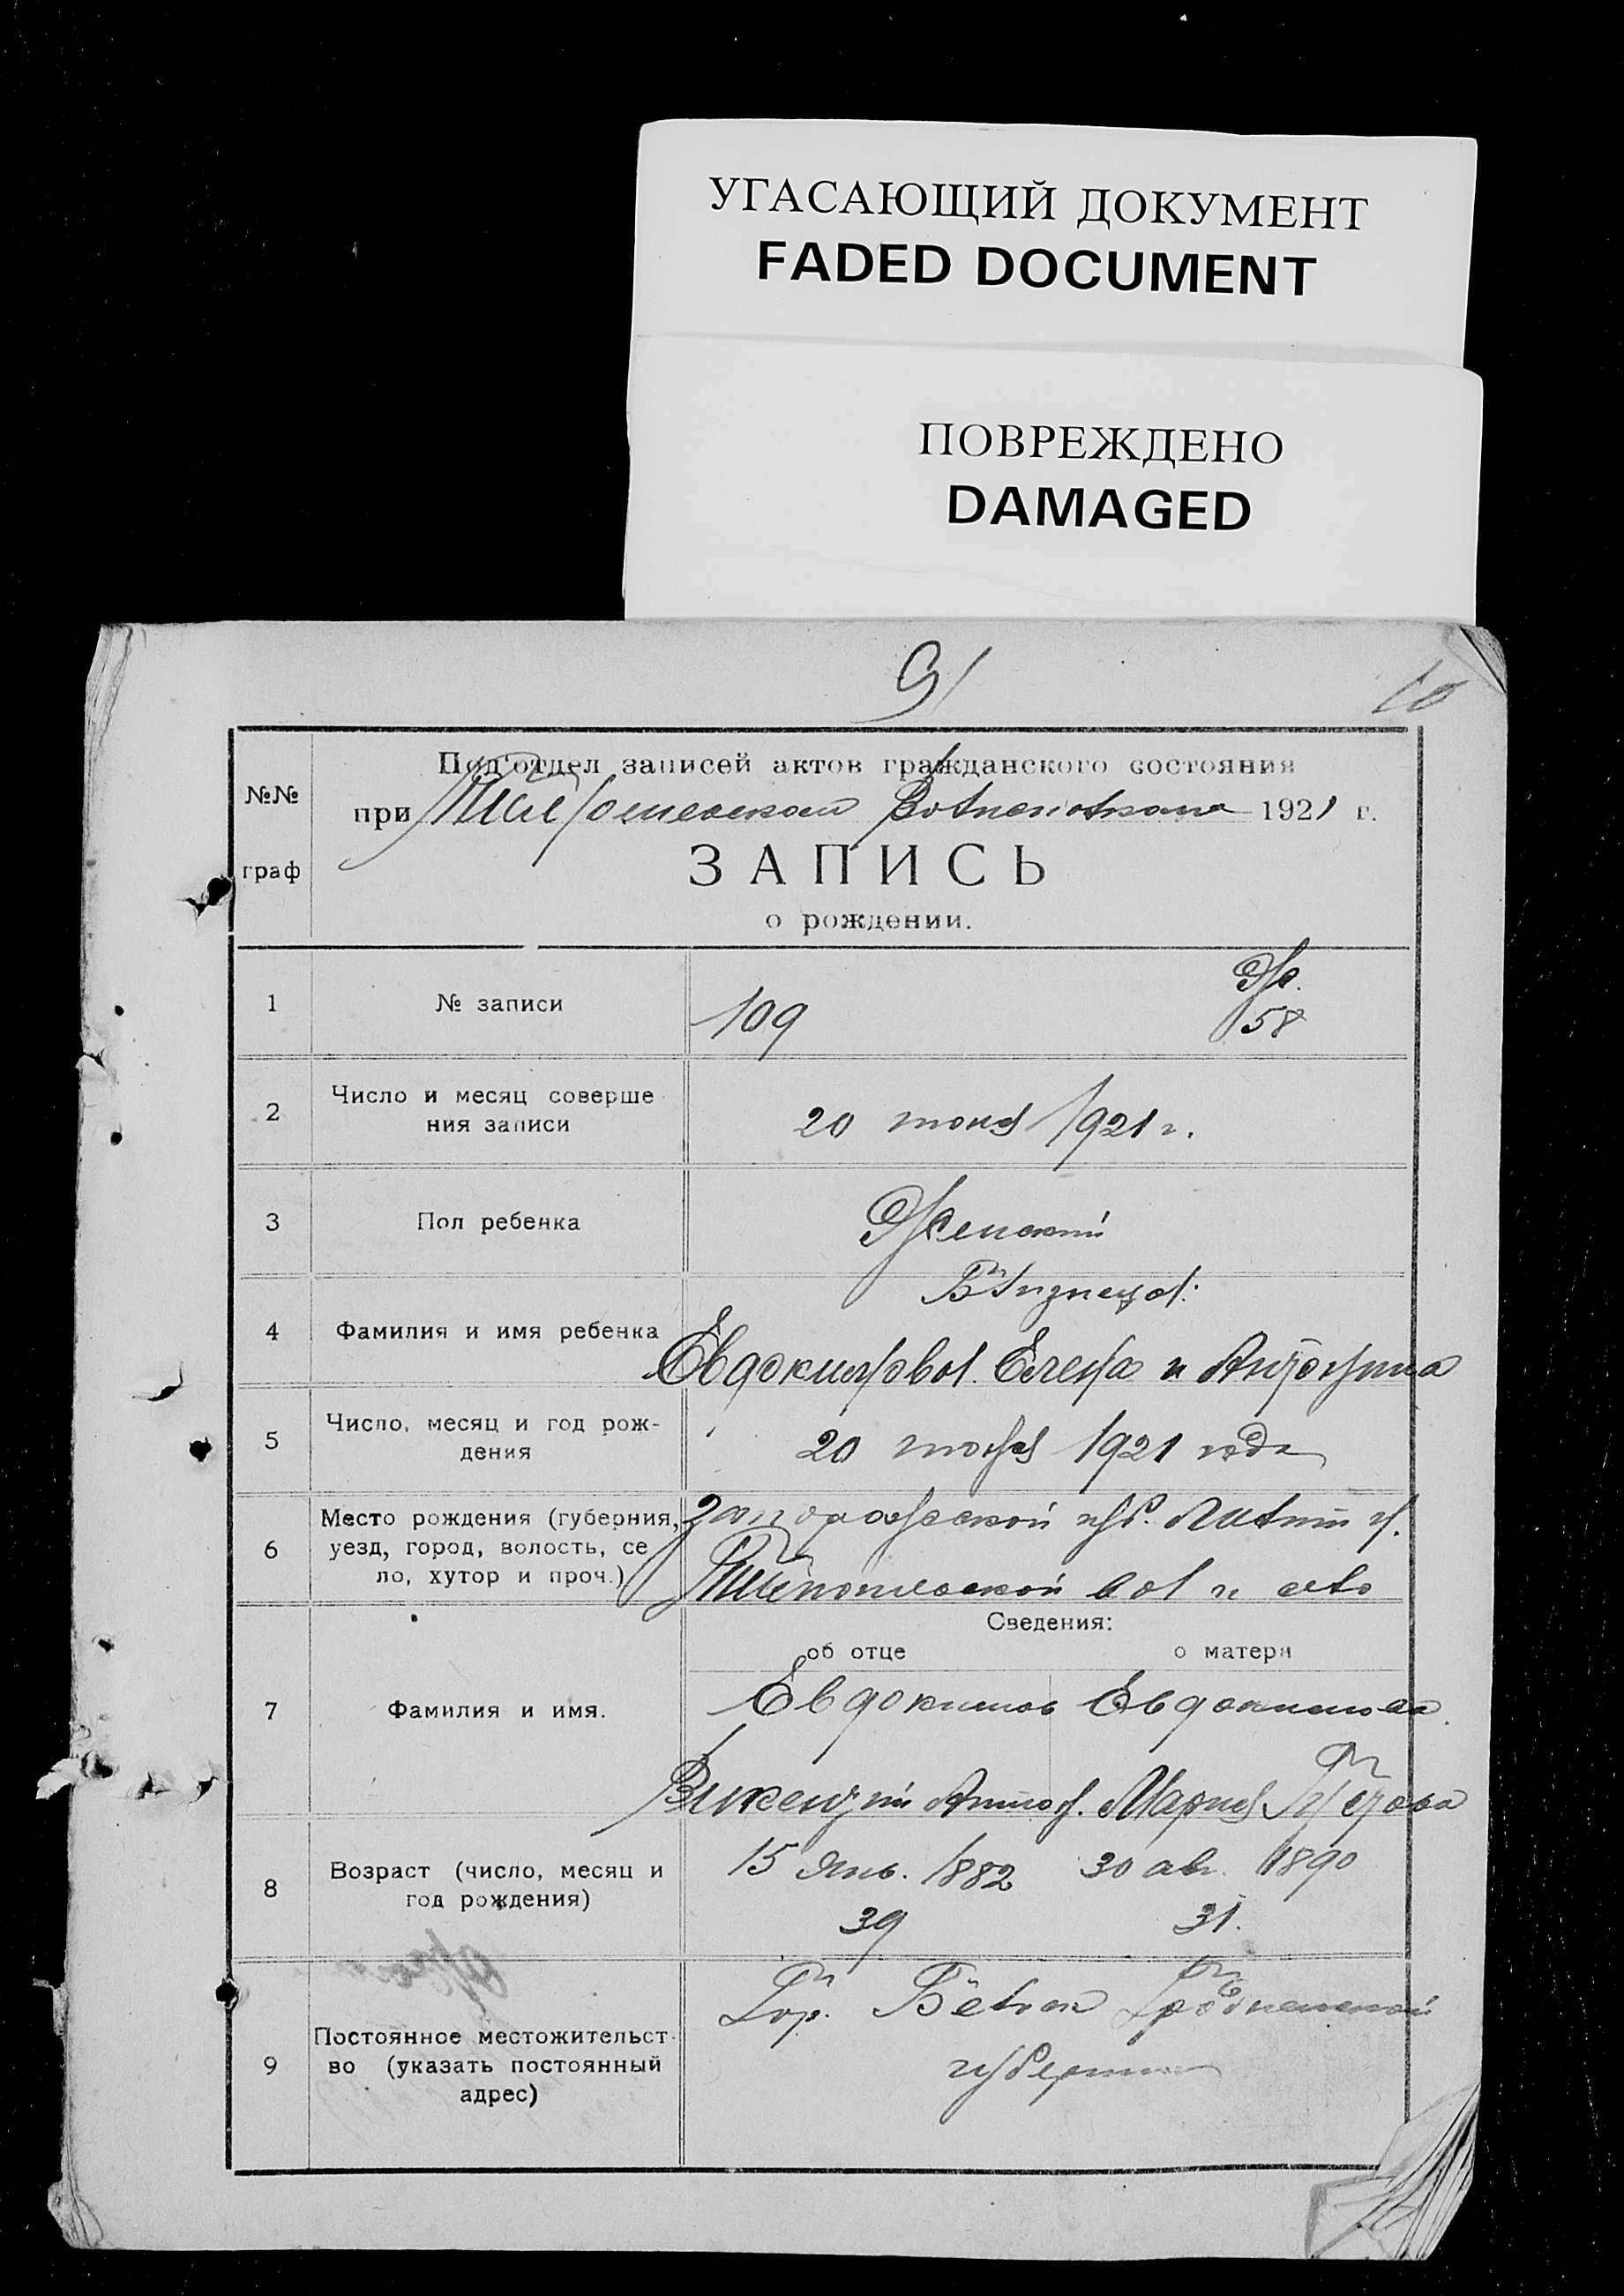 УГАСАЮЩИЙ ДОКУМЕНТ
FADED DOCUMENT
ПОВРЕЖДЕНО
DAMAGED
91
10
№№
граф
Под'отдел записей актов гражданского состояния
при 1921 г.
ЗАПИСЬ
о рождении.
1
№ записи
109
Ж.
58
2
Число и месяц соверше
ния записи
20 июня 1921 г.
3
Пол ребенка
Женский
Близнецы:
4
Фамилия и имя ребенка
Евдокимовы. Елена и Антонина
5
Число, месяц и год рож-
дения
20 июня 1921 года
6
Место рождения (губерния,
уезд, город, волость, се
ло, хутор и проч.)
Запорожской губ. у.
вол и село
Сведения:
об отце
о матери
7
Фамилия и имя.
Евдокимов
Евдокимова
Викентий Антон.
Мария
8
Возраст (число, месяц и
год рождения)
15 Янв. 1882
30 ав. 1890
39
31.
9
Постоянное местожительст-
во (указать постоянный
адрес)
Гор. Гродненской
губернии